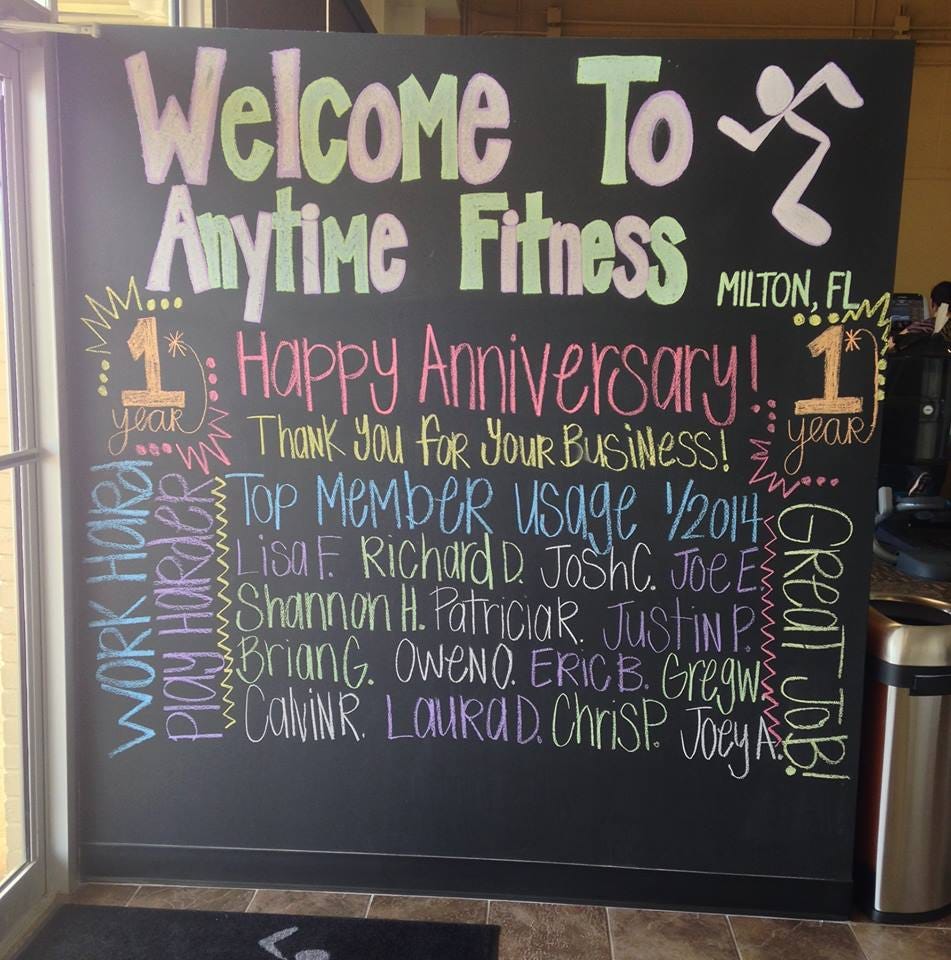 Welcome To
Anytime Fitness
MILTON, FL
1*
year
Happy Anniversary!
1*
year
Thank You for Your Business!
Top Member Usage 1/2014
Lisa F. Richard D. Josh C. Joe E.
Shannon H. Patricia R. Justin P.
Brian G. Owen O. Eric B. Greg W.
Calvin R. Laura D. Chris P. Joey A.
Work Hard
Play Harder
Great Job!